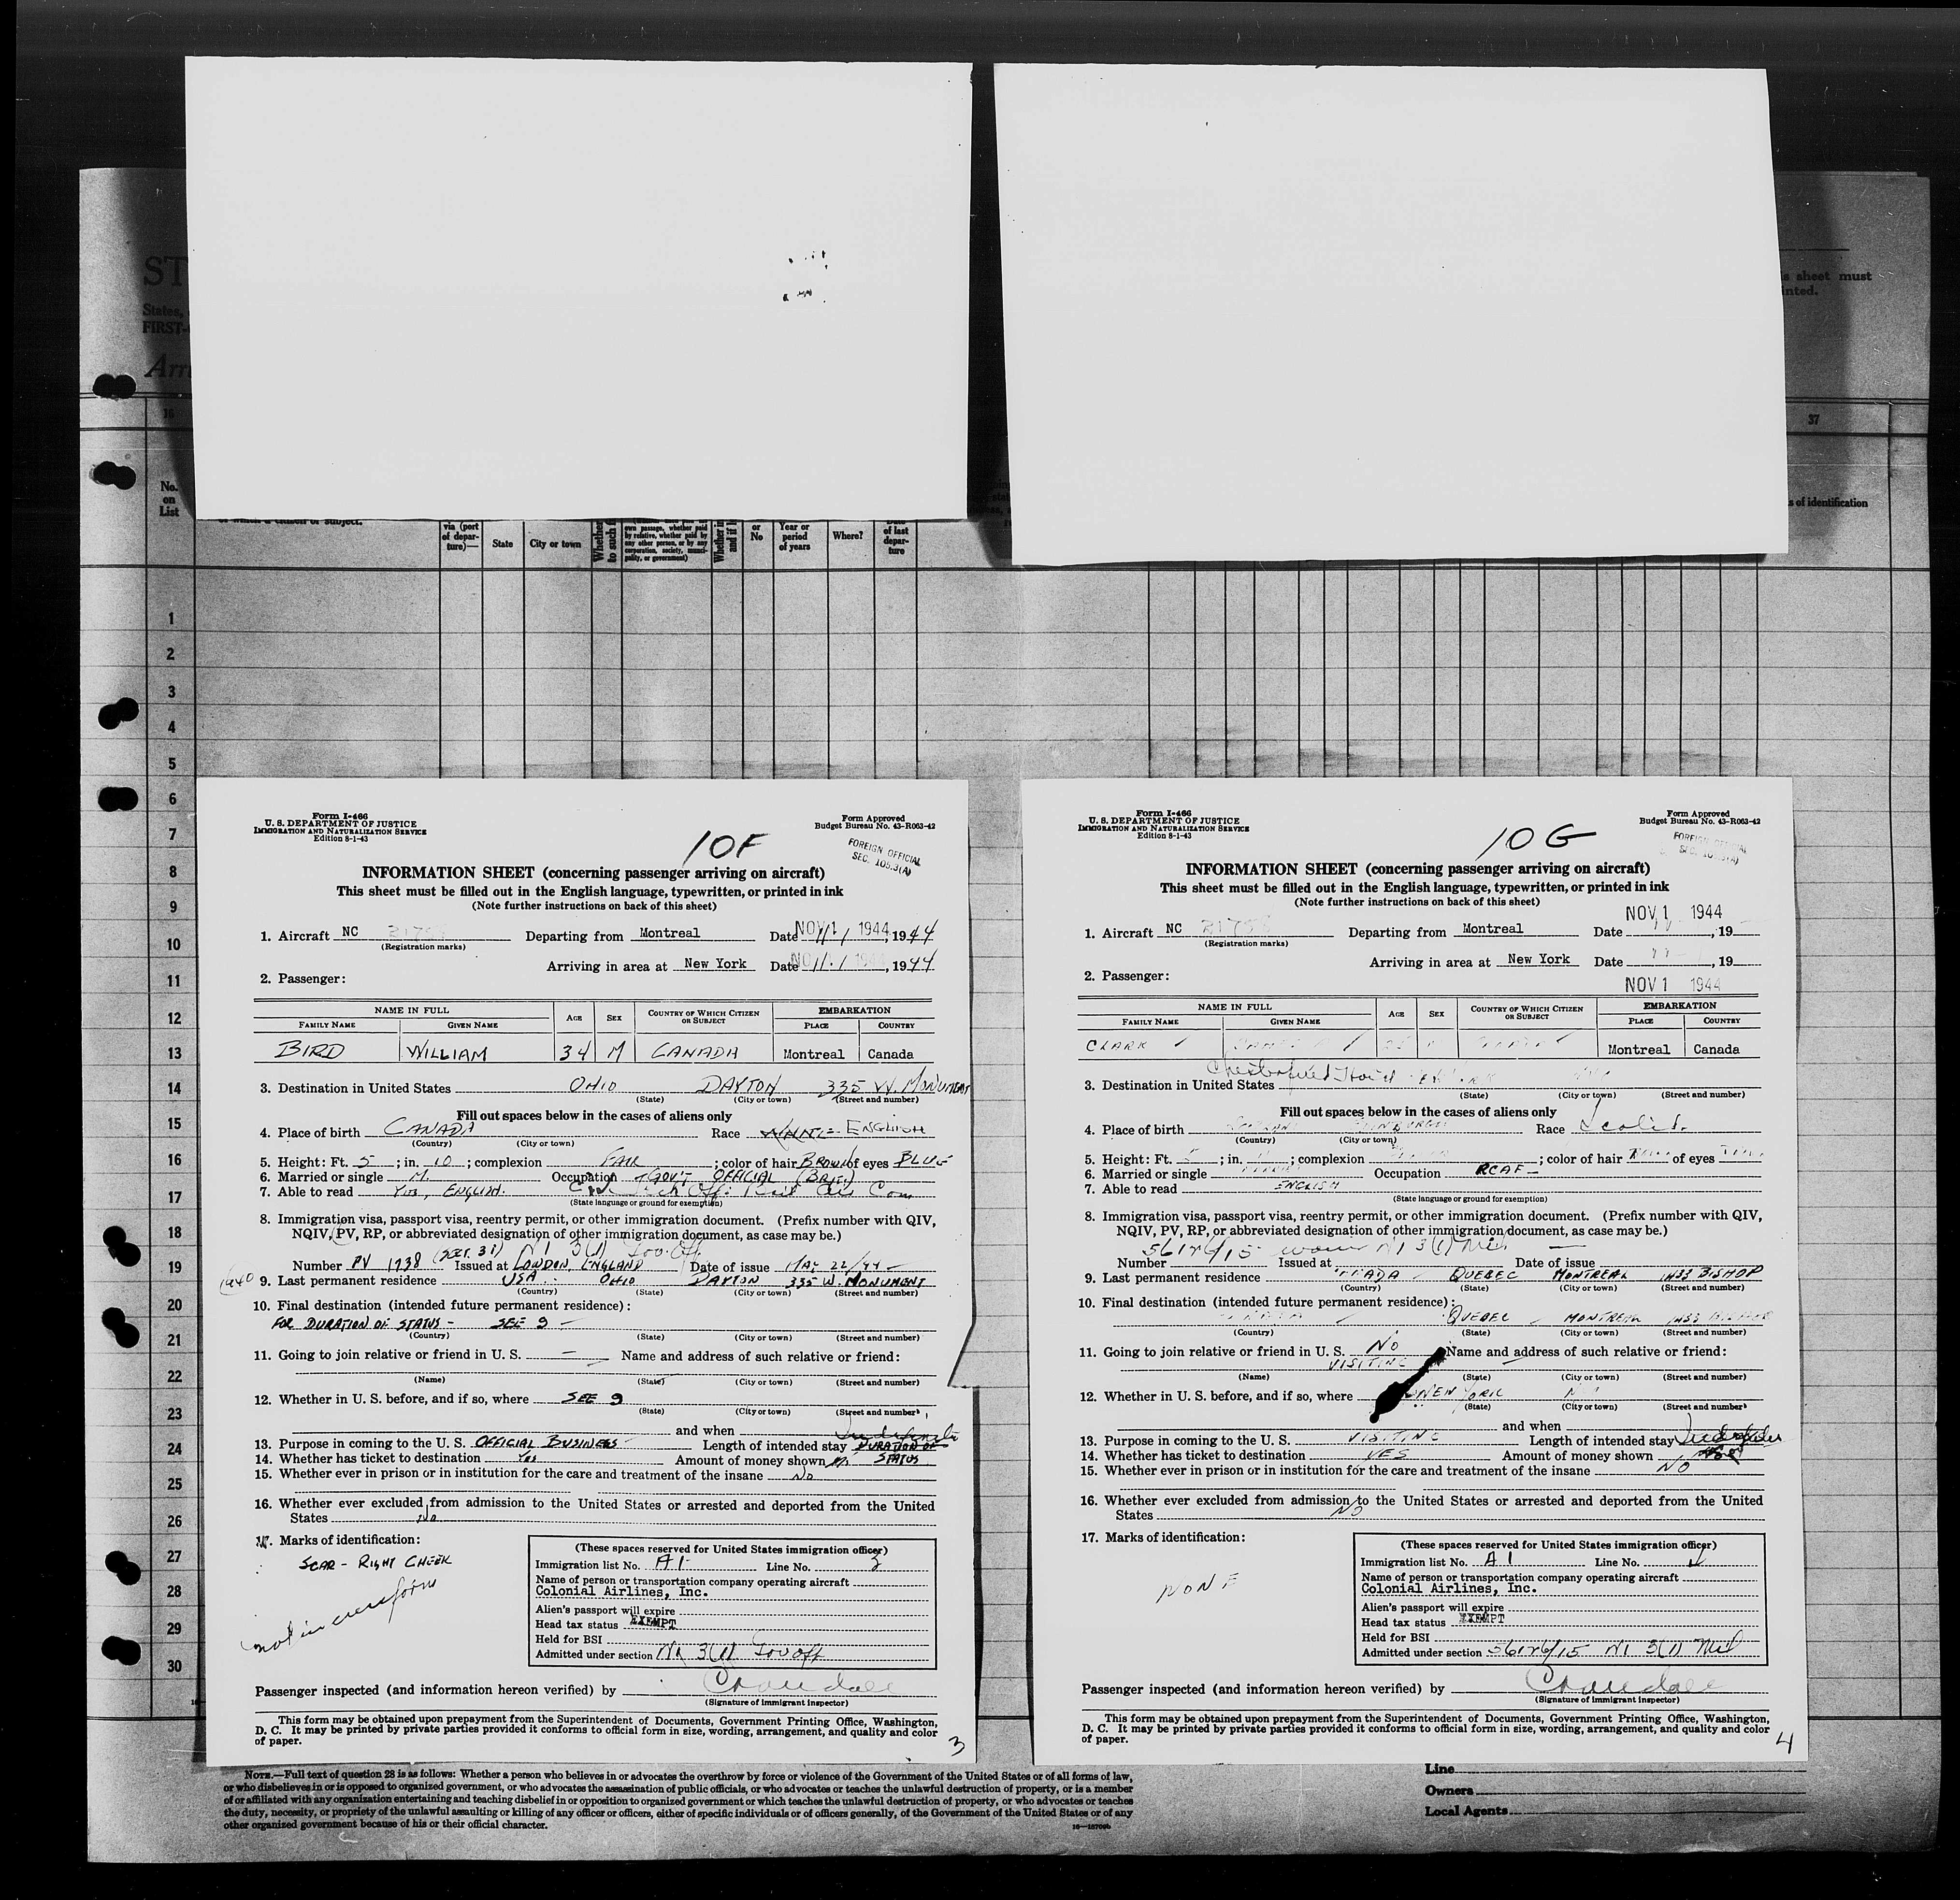 ST
States,
FIRST-
Arri
s sheet must
inted.
16
37
No.
on
List
s of identification
via (port
of depar-
ture)—
State
City or town
Whether
to such
own passage, whether paid
by relative, whether paid by
any other person, or by any
corporation, society, munici-
pality, or government)
Whether in
and if
or
No
Year or
period
of years
Where?
Date
of last
depar-
ture
1
2
3
4
5
6
7
8
9
10
11
12
13
14
15
16
17
18
19
20
21
22
23
24
25
26
27
28
29
30
Form I-466
U. S. DEPARTMENT OF JUSTICE
IMMIGRATION AND NATURALIZATION SERVICE
Edition 8-1-43
10F
Form Approved
Budget Bureau No. 43-R063-42
FOREIGN OFFICIAL
SEC. 105.3(A)
INFORMATION SHEET (concerning passenger arriving on aircraft)
This sheet must be filled out in the English language, typewritten, or printed in ink
(Note further instructions on back of this sheet)
NOV 1 1944
1. Aircraft NC Departing from Montreal Date 11/1, 1944
(Registration marks)
Arriving in area at New York Date 11/1, 1944
2. Passenger:
NAME IN FULL AGE SEX COUNTRY OF WHICH CITIZEN OR SUBJECT EMBARKATION
FAMILY NAME GIVEN NAME PLACE COUNTRY
BIRD WILLIAM 34 M CANADA Montreal Canada
3. Destination in United States OHIO DAYTON 335 W. MONUMENT
(State) (City or town) (Street and number)
Fill out spaces below in the cases of aliens only
4. Place of birth CANADA Race WHITE ENGLISH
(Country) (City or town)
5. Height: Ft. 5; in. 10; complexion FAIR; color of hair BROWN of eyes BLUE
6. Married or single M. Occupation GOV'T OFFICIAL (BRIT.)
7. Able to read YES, ENGLISH.
(State language or ground for exemption)
8. Immigration visa, passport visa, reentry permit, or other immigration document. (Prefix number with QIV,
NQIV, PV, RP, or abbreviated designation of other immigration document, as case may be.)
(SECT. 31) N1 3(1) Gov. Off.
Number PV 1738 Issued at LONDON, ENGLAND Date of issue MAR 22/44
9. Last permanent residence USA OHIO DAYTON 335 W. MONUMENT
(Country) (State) (City or town) (Street and number)
10. Final destination (intended future permanent residence):
FOR DURATION OF STATUS - SEE 9 -
(Country) (State) (City or town) (Street and number)
11. Going to join relative or friend in U. S. - Name and address of such relative or friend:
(Name) (State) (City or town) (Street and number)
12. Whether in U. S. before, and if so, where SEE 9
(State) (City or town) (Street and number)
and when
Indefinite
13. Purpose in coming to the U. S. OFFICIAL BUSINESS Length of intended stay DURATION OF
14. Whether has ticket to destination Yes Amount of money shown STATUS
15. Whether ever in prison or in institution for the care and treatment of the insane No
16. Whether ever excluded from admission to the United States or arrested and deported from the United
States No
17. Marks of identification:
SCAR - RIGHT CHEEK
not in uniform
(These spaces reserved for United States immigration officer)
Immigration list No. A1 Line No. 3
Name of person or transportation company operating aircraft
Colonial Airlines, Inc.
Alien's passport will expire
Head tax status EXEMPT
Held for BSI
Admitted under section N1 3(1) Gov off
Passenger inspected (and information hereon verified) by Crandall
(Signature of immigrant inspector)
This form may be obtained upon prepayment from the Superintendent of Documents, Government Printing Office, Washington,
D. C. It may be printed by private parties provided it conforms to official form in size, wording, arrangement, and quality and color
of paper.
3
Form I-466
U. S. DEPARTMENT OF JUSTICE
IMMIGRATION AND NATURALIZATION SERVICE
Edition 8-1-43
10 G
Form Approved
Budget Bureau No. 43-R063-42
FOREIGN OFFICIAL
INFORMATION SHEET (concerning passenger arriving on aircraft)
This sheet must be filled out in the English language, typewritten, or printed in ink
(Note further instructions on back of this sheet)
NOV 1 1944
1. Aircraft NC Departing from Montreal Date , 19
(Registration marks)
Arriving in area at New York Date , 19
2. Passenger:
NOV 1 1944
NAME IN FULL AGE SEX COUNTRY OF WHICH CITIZEN OR SUBJECT EMBARKATION
FAMILY NAME GIVEN NAME PLACE COUNTRY
CLARK Montreal Canada
Chesterfield Hotel
3. Destination in United States
(State) (City or town) (Street and number)
Fill out spaces below in the cases of aliens only
4. Place of birth Race Scotish
(Country) (City or town)
5. Height: Ft. ; in. ; complexion ; color of hair of eyes
6. Married or single Occupation RCAF -
7. Able to read ENGLISH
(State language or ground for exemption)
8. Immigration visa, passport visa, reentry permit, or other immigration document. (Prefix number with QIV,
NQIV, PV, RP, or abbreviated designation of other immigration document, as case may be.)
N1 3(1) Mil
Number Issued at Date of issue
9. Last permanent residence QUEBEC MONTREAL 1433 BISHOP
(Country) (State) (City or town) (Street and number)
10. Final destination (intended future permanent residence):
QUEBEC MONTREAL 1433 BISHOP
(Country) (State) (City or town) (Street and number)
11. Going to join relative or friend in U. S. No Name and address of such relative or friend:
VISITING
(Name) (State) (City or town) (Street and number)
12. Whether in U. S. before, and if so, where NEW YORK
(State) (City or town) (Street and number)
and when
13. Purpose in coming to the U. S. VISITING Length of intended stay
14. Whether has ticket to destination YES Amount of money shown
15. Whether ever in prison or in institution for the care and treatment of the insane NO
16. Whether ever excluded from admission to the United States or arrested and deported from the United
States NO
17. Marks of identification:
NONE
(These spaces reserved for United States immigration officer)
Immigration list No. A1 Line No.
Name of person or transportation company operating aircraft
Colonial Airlines, Inc.
Alien's passport will expire
Head tax status EXEMPT
Held for BSI
Admitted under section N1 3(1) Mil
Passenger inspected (and information hereon verified) by Crandall
(Signature of immigrant inspector)
This form may be obtained upon prepayment from the Superintendent of Documents, Government Printing Office, Washington,
D. C. It may be printed by private parties provided it conforms to official form in size, wording, arrangement, and quality and color
of paper.
4
NOTE.—Full text of question 28 is as follows: Whether a person who believes in or advocates the overthrow by force or violence of the Government of the United States or of all forms of law,
or who disbelieves in or is opposed to organized government, or who advocates the assassination of public officials, or who advocates or teaches the unlawful destruction of property, or is a member
of or affiliated with any organization entertaining and teaching disbelief in or opposition to organized government or which teaches the unlawful destruction of property, or who advocates or teaches
the duty, necessity, or propriety of the unlawful assaulting or killing of any officer or officers, either of specific individuals or of officers generally, of the Government of the United States or of any
other organized government because of his or their official character.
Line
Owners
Local Agents